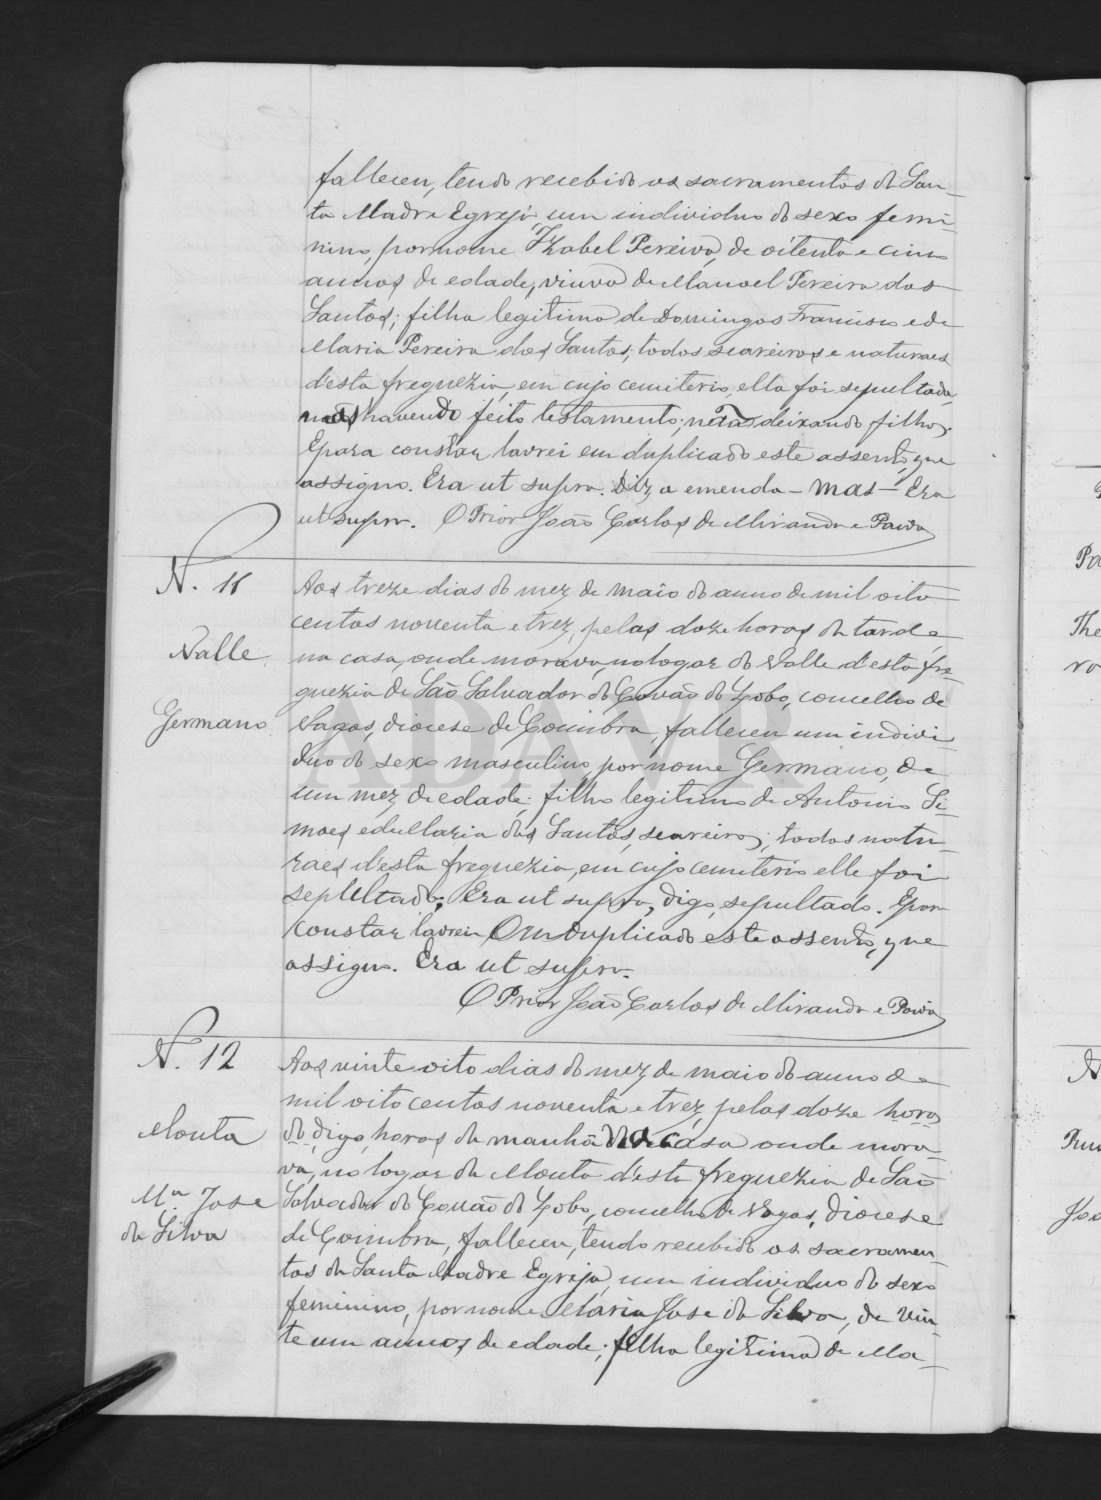 falleceu, tendo recebido os sacramentos da San-
ta Madre Egreja, um individuo do sexo femi-
nino, por nome Izabel Pereira, de oitenta e cinco
annos de edade, viuva de Manoel Pereira dos
Santos; filha legitima de Domingos Francisco e de
Maria Pereira dos Santos; todos seareiros e naturaes
d'esta freguezia, em cujo cemiterio ella foi sepultada,
não havendo feito testamento; mas deixando filhos.
E para constar lavrei em duplicado este assento, que
assigno. Era ut supra. Diz a emenda - mas - Era
ut supra. O Prior João Carlos de Miranda e Paiva
N. 11
Valle
Germano
Aos treze dias do mez de maio do anno de mil oito
centos noventa e trez, pelas doze horas da tarde,
na casa, onde morava, no logar do Valle d'esta fre-
guezia de São Salvador do Covão do Lobo, concelho de
Vagos, diocese de Coimbra, falleceu um indivi-
duo do sexo masculino, por nome Germano, de
um mez de edade; filho legitimo de Antonio Si-
mões e de Maria dos Santos, seareiros; todos natu-
raes d'esta freguezia, em cujo cemiterio elle foi
sepultado; Era ut supra, digo, sepultado. E para
constar lavrei em duplicado este assento, que
assigno. Era ut supra.
O Prior João Carlos de Miranda e Paiva
N. 12
Mouta
M.ª Jose
da Silva
Aos vinte oito dias do mez de maio do anno de
mil oito centos noventa e trez, pelas doze horas
do, digo, horas da manhã casa onde mora-
va, no logar da Mouta d'esta freguezia de São
Salvador do Covão do Lobo, concelho de Vagos, diocese
de Coimbra, falleceu, tendo recebido os sacramen-
tos da Santa Madre Egreja, um individuo do sexo
feminino, por nome Maria Jose da Silva, de vin-
te um annos de edade; filha legitima de Ma-
ADAVR